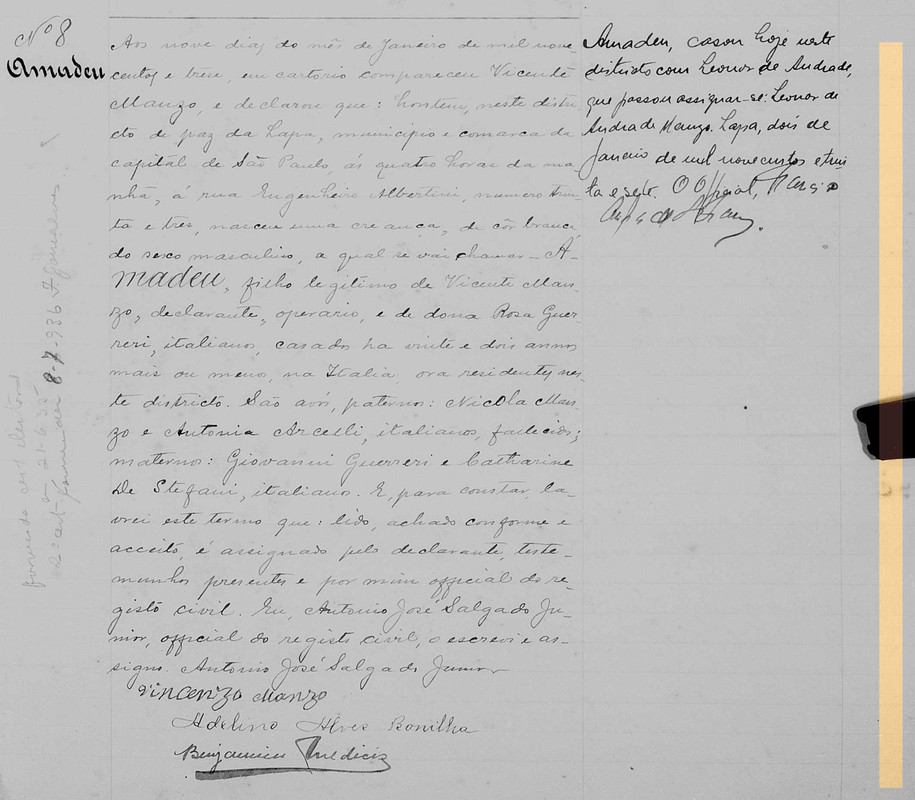 Nº 8
Amadeu
Aos nove dias do mês de Janeiro de mil nove
centos e treze, em cartorio compareceu Vicente
Manzo, e declarou que: hontem, neste distri-
cto de paz da Lapa, municipio e comarca da
capital de São Paulo, ás quatro horas da ma
nhã, á rua Engenheiro Albertini, numero trin
ta e tres, nasceu uma creança, de côr branca
do sexo masculino, a qual se vai chamar - A-
madeu, filho legitimo de Vicente Man-
zo, declarante, operario, e de dona Rosa Guer-
reri, italianos, casados ha vinte e dois annos
mais ou menos, na Italia, ora residentes nes-
te districto. São avós, paternos: Nicola Man-
zo e Antonia Arcelli, italianos, fallecidos;
maternos: Giovanni Guerreri e Catharina
De Stefani, italianos. E, para constar, la-
vrei este termo que: lido, achado conforme e
acceito, é assignado pelo declarante, teste-
munhas presentes e por mim official do re-
gisto civil. Eu, Antonio José Salgado Ju-
nior, official do registo civil, o escrevi e as-
signo. Antonio José Salgado Junior
Vincenzo Manzo
Adelino Alves Bonilha
Benjamim
Amadeu, casou hoje neste
districto com Leonor de Andrade,
que passou assignar-se: Leonor de
Andrade Manzo. Lapa, dois de
Janeiro de mil novecentos e trin
ta e sete. O Official,
8-7-936